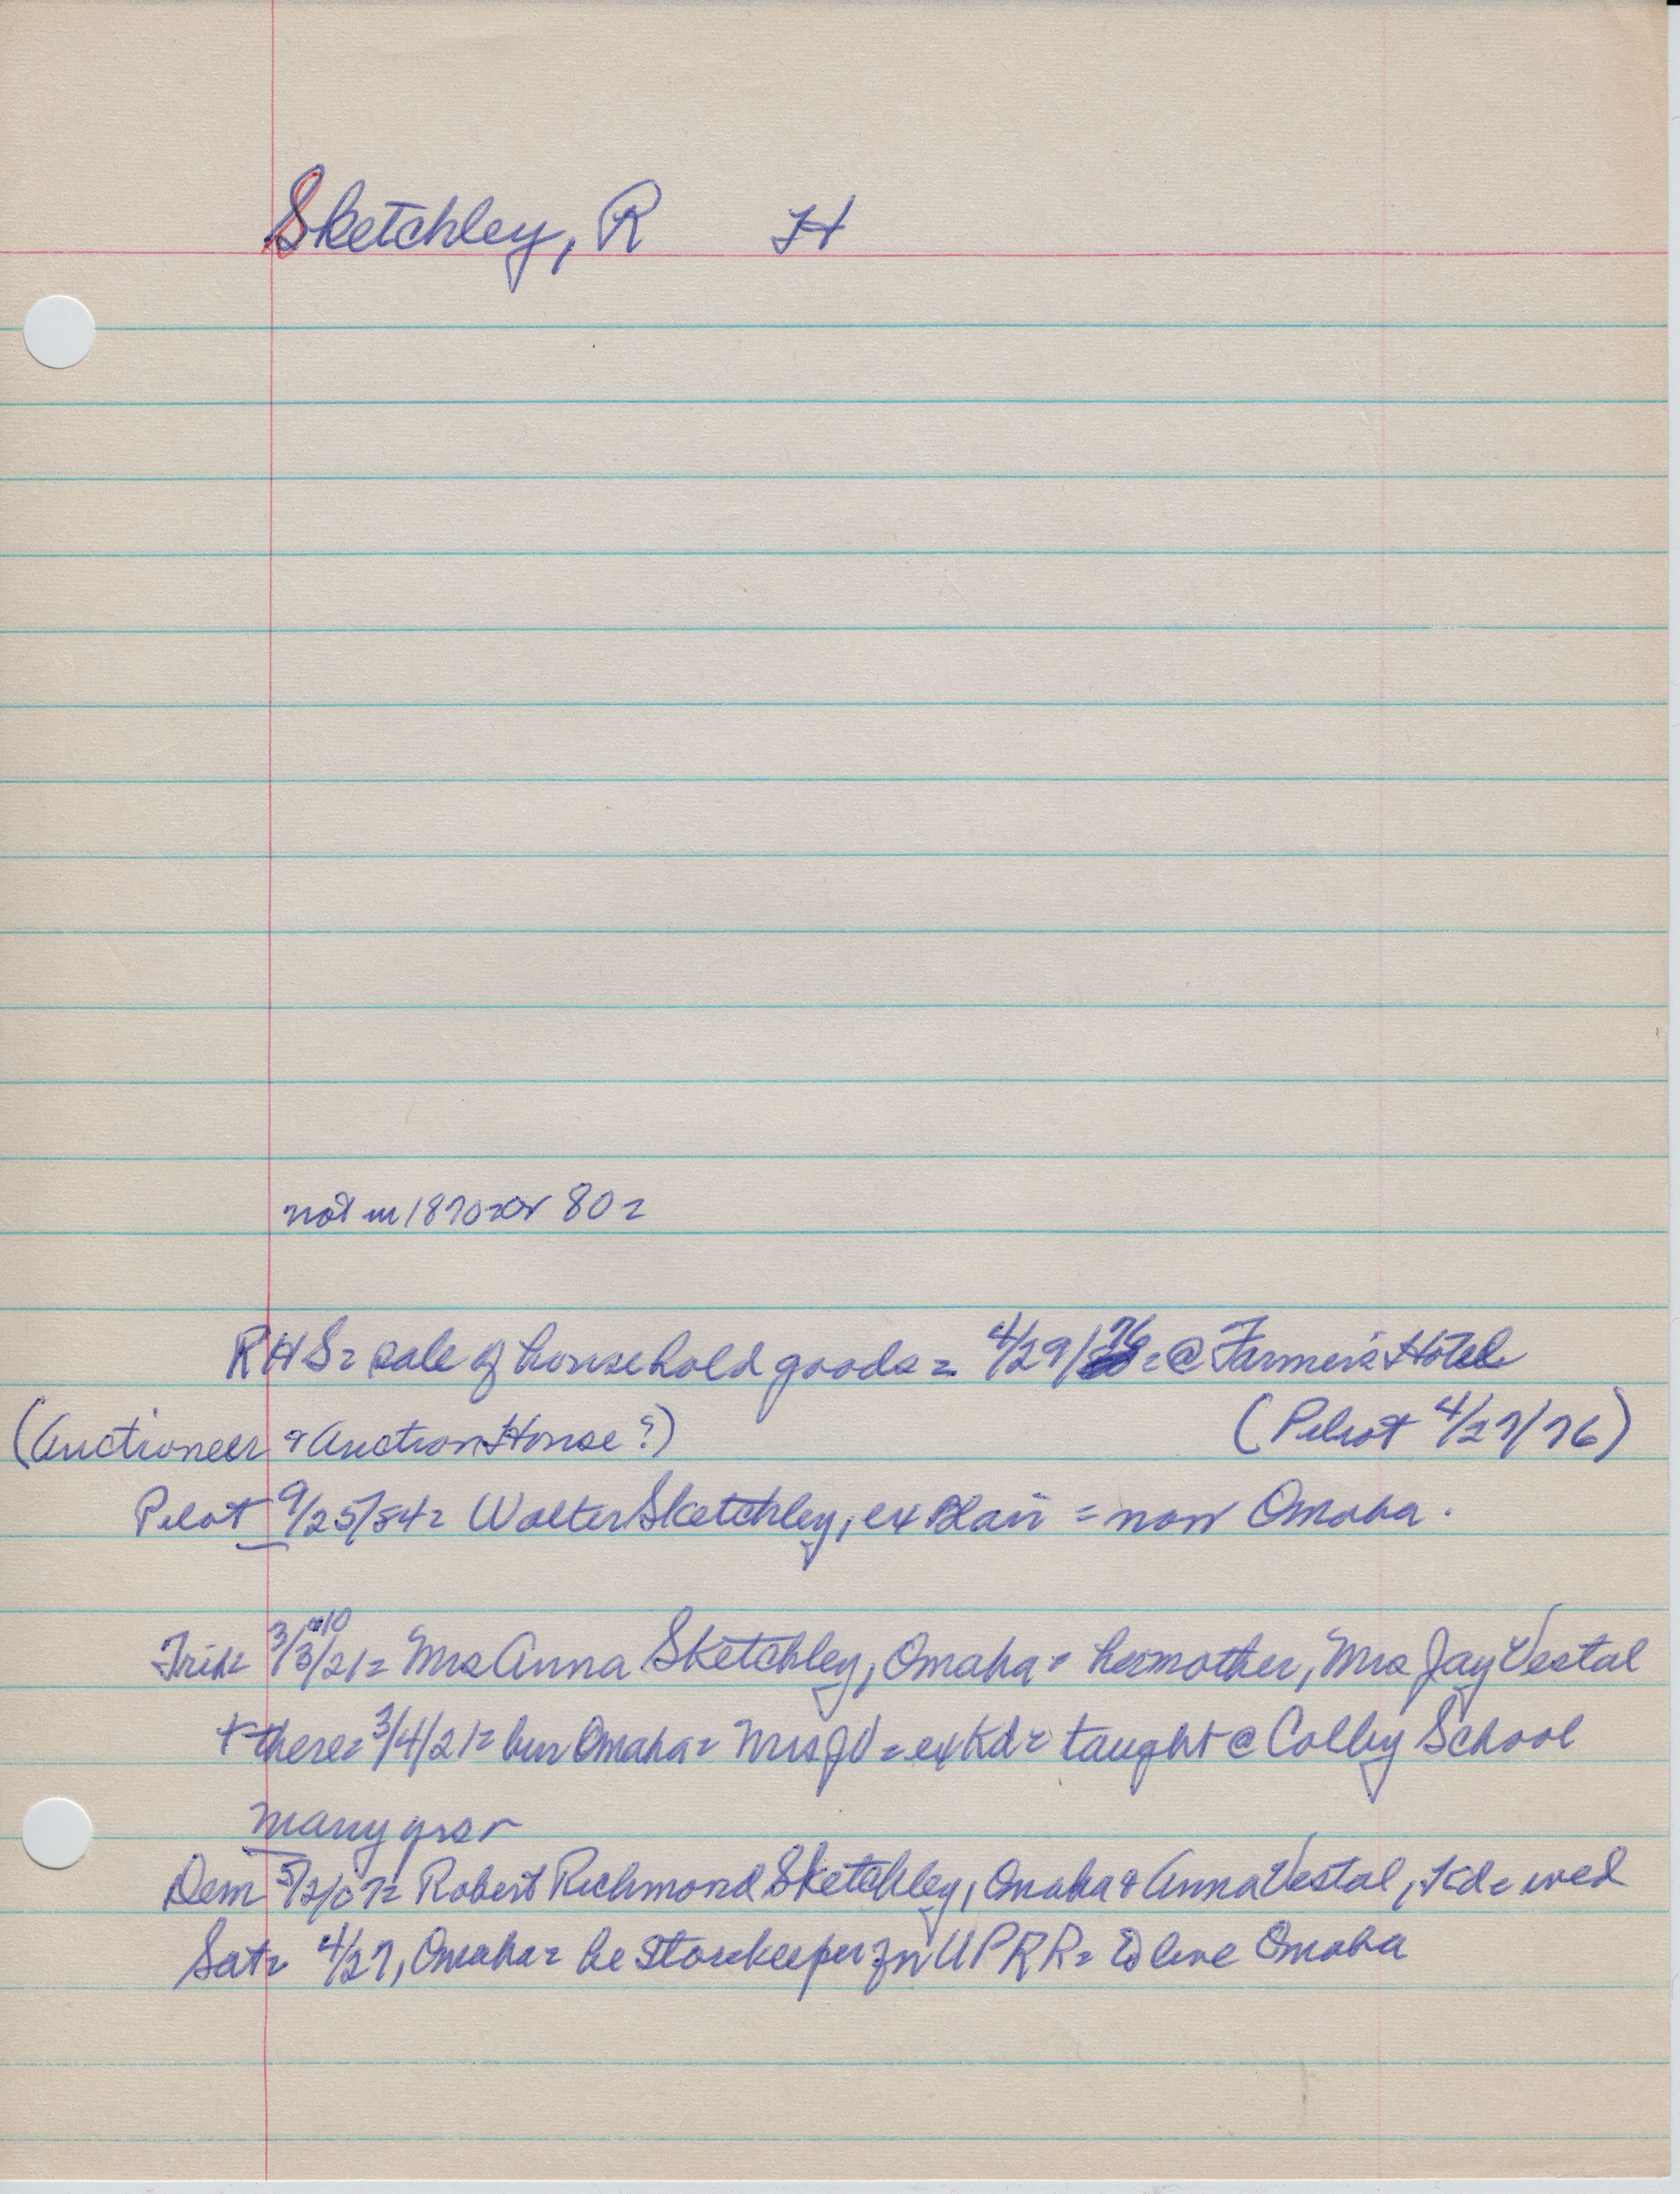 Sketchley, R H
not in 1870 or 80=
RHS= sale of household goods= 4/29/76= @ Farmer's Hotel
(Auctioneer & Auction House?) (Pilot 4/27/76)
Pilot 9/25/84= Walter Sketchley, ex Blair = now Omaha.
Trib= 3/3/21= Mrs Anna Sketchley, Omaha = her mother, Mrs Jay Vestal
+ there= 3/4/21= bur Omaha= Mrs JV = ex Kd= taught @ Colby School
many yrs
Dem 5/2/07= Robert Richmond Sketchley, Omaha & Anna Vestal, Kd= wed
Sat= 4/27, Omaha= he storekeeper fn UPRR= to live Omaha